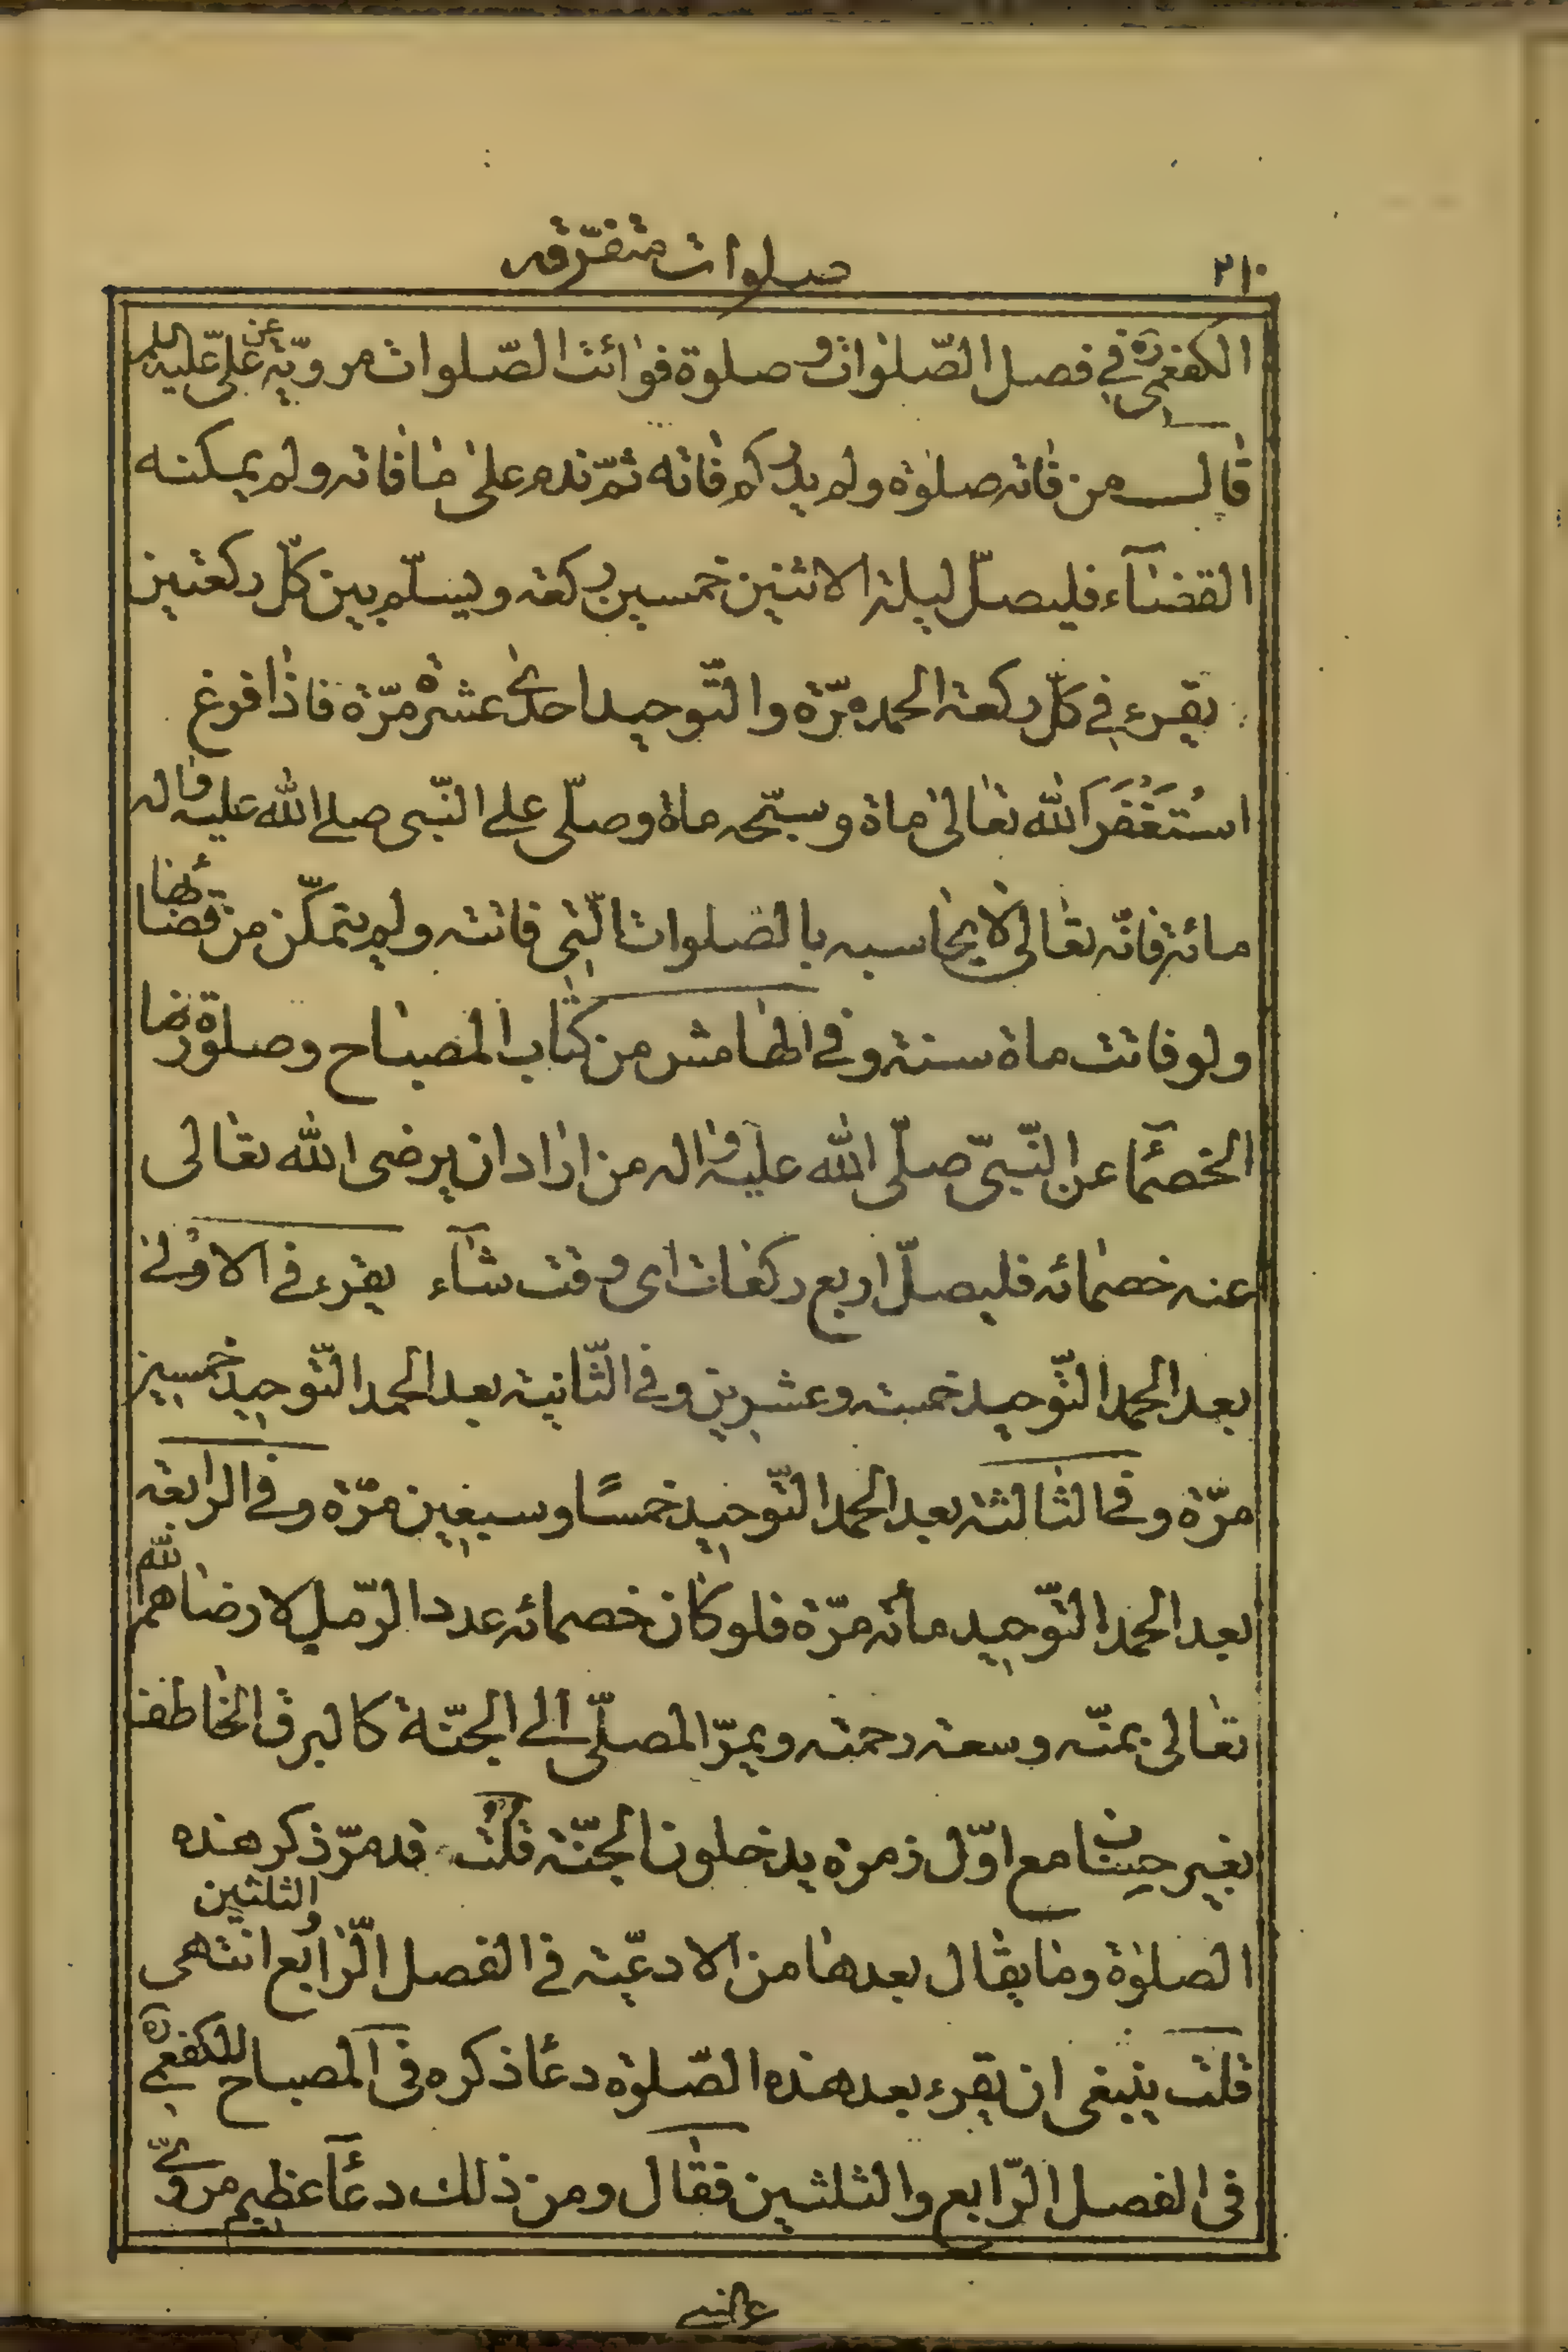 ٢١٠
صلوات متفرّقه
الكفعمىّ ره في فصل الصّلوات و صلوة فوائت الصّلوات مرويّة عن علىّ عليه السلم
قال من فاته صلوة ولم يدر كم فاته ثمّ ندم على ما فاته ولم يمكنه
القضآء فليصلّ ليلة الاثنين خمسين ركعة ويسلّم بين كلّ ركعتين
يقرء في كلّ ركعة الحمد مرّة والتّوحيد احدى عشرة مرّة فاذا فرغ
استغفر الله تعالى ماة وسبّحه ماة وصلّى على النّبى صلى الله عليه واله
مائة فانّه تعالى لا يحاسبه بالصّلوات الّتى فاتته ولم يتمكّن من قضائها
ولو فاتت ماة سنة وفي الهامش من كتاب المصباح وصلوة رضا
الخصمآء عن النّبىّ صلّى الله عليه واله من اراد ان يرضى الله تعالى
عنه خصمائه فليصلّ اربع ركعات اى وقت شآء يقرء في الاولى
بعد الحمد التّوحيد خمسة وعشرين وفي الثّانية بعد الحمد التّوحيد خمسين
مرّة وفي الثالثة بعد الحمد التّوحيد خمسًا وسبعين مرّة وفي الرابعة
بعد الحمد التّوحيد مأته مرّة فلو كان خصمائه عدد الرّمل لارضاهم الله
تعالى بمنّه وسعة رحمته ويمرّ المصلّى الى الجنّة كالبرق الخاطف
بغير حساب مع اوّل زمرة يدخلون الجنّة قلت قد مرّ ذكر هذه
الصلوة وما يقال بعدها من الادعية في الفصل الرّابع والثلثين انتهى
قلت ينبغى ان يقرء بعد هذه الصّلوة دعآ ذكره في المصباح للكفعمى ره
في الفصل الرّابع والثلثين فقال ومن ذلك دعآ عظيم مروىّ
عن النبى